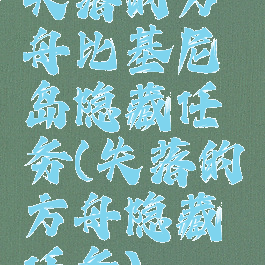 失落的方
舟比基尼
岛隐藏任
务(失落的
方舟隐藏
任务)